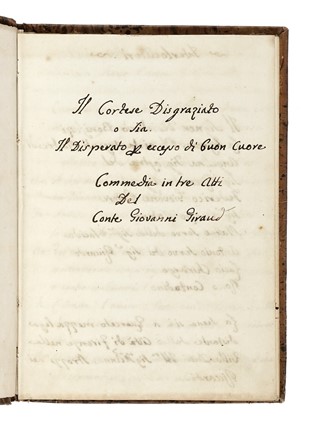 Il Cortese Disgraziato
o sia.
Il Disperato p eccesso di buon Cuore
Commedia in tre Atti
Del
Conte Giovanni Giraud